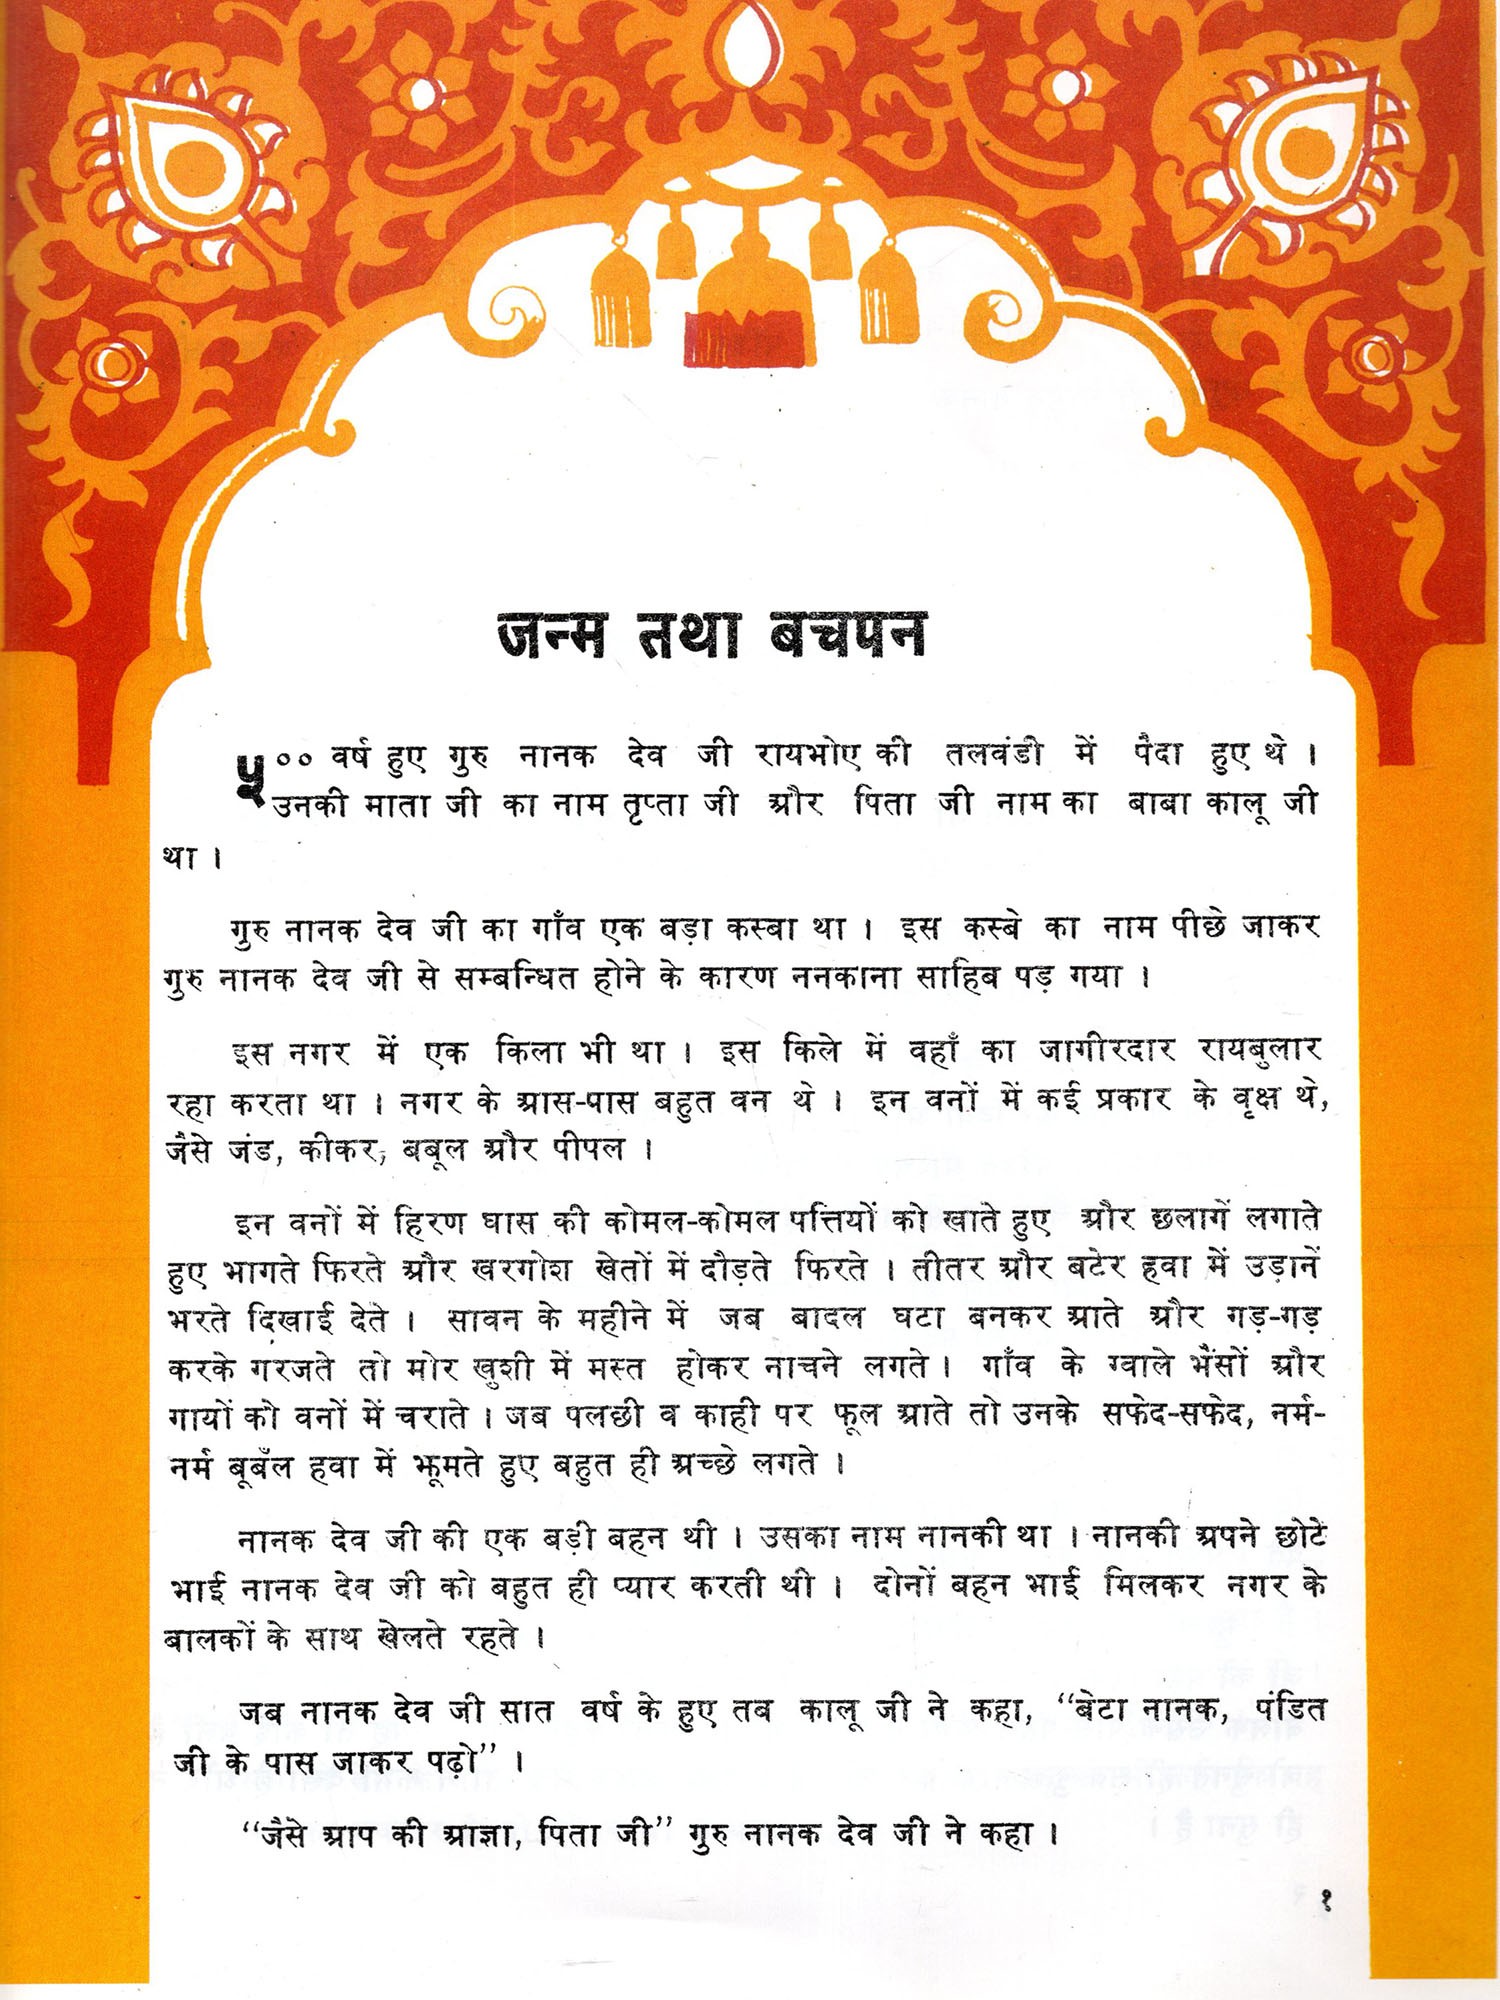 जन्म तथा बचपन
५०० वर्ष हुए गुरु नानक देव जी रायभोए की तलवंडी में पैदा हुए थे ।
उनकी माता जी का नाम तृप्ता जी और पिता जी नाम का बाबा कालू जी
था ।
गुरु नानक देव जी का गाँव एक बड़ा कस्बा था । इस कस्बे का नाम पीछे जाकर
गुरु नानक देव जी से सम्बन्धित होने के कारण ननकाना साहिब पड़ गया ।
इस नगर में एक किला भी था । इस किले में वहाँ का जागीरदार रायबुलार
रहा करता था । नगर के आस-पास बहुत वन थे । इन वनों में कई प्रकार के वृक्ष थे,
जैसे जंड, कीकर, बबूल और पीपल ।
इन वनों में हिरण घास की कोमल-कोमल पत्तियों को खाते हुए और छलागें लगाते
हुए भागते फिरते और खरगोश खेतों में दौड़ते फिरते । तीतर और बटेर हवा में उड़ानें
भरते दिखाई देते । सावन के महीने में जब बादल घटा बनकर आते और गड़-गड़
करके गरजते तो मोर खुशी में मस्त होकर नाचने लगते । गाँव के ग्वाले भैंसों और
गायों को वनों में चराते । जब पलछी व काही पर फूल आते तो उनके सफेद-सफेद, नर्म-
नर्म बूबॅल हवा में झूमते हुए बहुत ही अच्छे लगते ।
नानक देव जी की एक बड़ी बहन थी । उसका नाम नानकी था । नानकी अपने छोटे
भाई नानक देव जी को बहुत ही प्यार करती थी । दोनों बहन भाई मिलकर नगर के
बालकों के साथ खेलते रहते ।
जब नानक देव जी सात वर्ष के हुए तब कालू जी ने कहा, “बेटा नानक, पंडित
जी के पास जाकर पढ़ो” ।
“जैसे आप की आज्ञा, पिता जी” गुरु नानक देव जी ने कहा ।
१